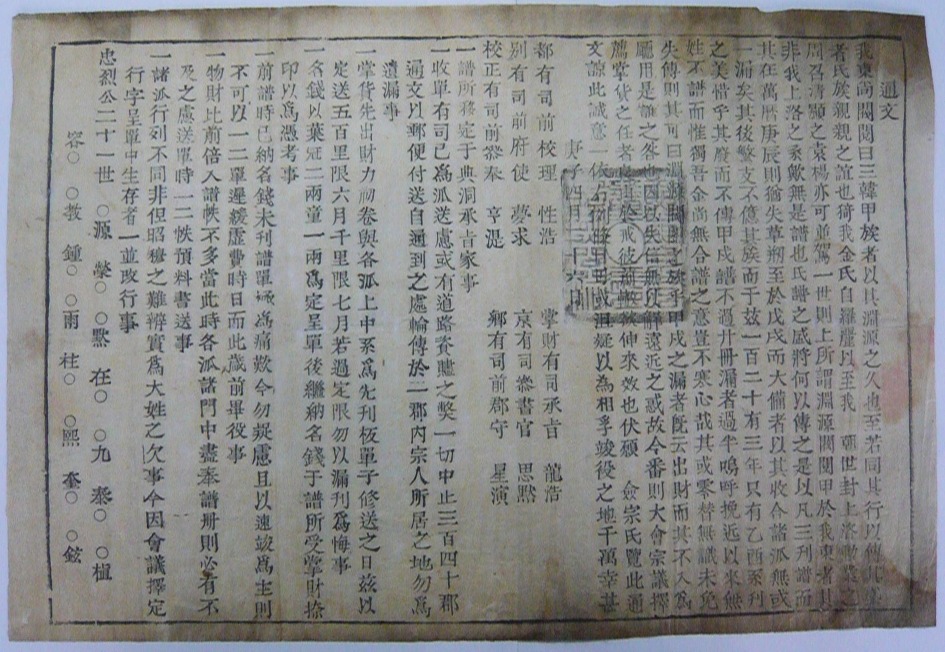 通文
我東尚閥閱曰三韓甲族者以其淵源之久也至若同其行以傳其
者氏族親親之誼也猗我金氏自羅麗以至我 朝世封上洛
周召清顯之袁楊亦可並駕一世則上所謂淵源閥閱甲於我東者
非我上洛之系歟無是譜也氏譜之盛將何以傳之是以凡三刊譜而
其在萬曆庚辰則猶失草刱至於戊戌而大備者以其收合諸派無或
一漏矣其後繁支不億其族而于玆一百二十有三年只有乙酉系刊
之美惜乎其廢而不傳甲戌譜不過廾冊漏者過半嗚呼挽近以來無
姓不譜而惟獨吾金尚無合譜之意豈不寒心哉其或零替無識未免
失傳則其可曰淵源閥閱之族乎甲戌之漏者旣云出財而其不入爲
是誰之咎也因以失信無以解遠近之惑故今番則大會宗議擇
薦掌貨之任者 戒彼 伸來效也伏願 僉宗氏覽此通
文諒此誠意一依 沮 以爲相孚竣役之地千萬幸甚
庚子四月二十六日
都有司前校理 性浩 掌財有司承旨 龍浩
別有司前府使 夢求 京有司叅書官 思默
校正有司前叅奉 亨湜 鄕有司前郡守 星演
一譜所移定于典洞承旨家事
一收單有司已爲派送慮或有道路賫贐之獘一切中止三百四十郡
通文以郵便付送自通到之處輪傳於一二郡內宗人所居之地勿爲
遺漏事
一掌貨先出財力初卷與各派上中系爲先刊板單子修送之日玆以
定送五百里限六月千里限七月若過定限勿以漏刊爲悔事
一名錢以葉冠二兩童一兩爲定呈單後繼納名錢于譜所受掌財捺
印以爲憑考事
一前譜時已納名錢未刊譜單 爲痛歎今勿疑慮且以速竣爲主則
不可以一二單遲緩虛費時日而此歲前畢役事
一物財比前倍入譜帙不多當此時各派諸門中盡奉譜冊則必有不
及之慮送單時一二帙預料書送事
一諸派行列不同非但昭穆之難辨實爲大姓之欠事今因會議擇定
行字呈單中生存者一並改行事
忠烈公二十一世 ○源 榮○ ○默 在○ ○九 泰○ ○植
容○ ○敎 鍾○ ○雨 柱○ ○熙 奎○ ○鉉